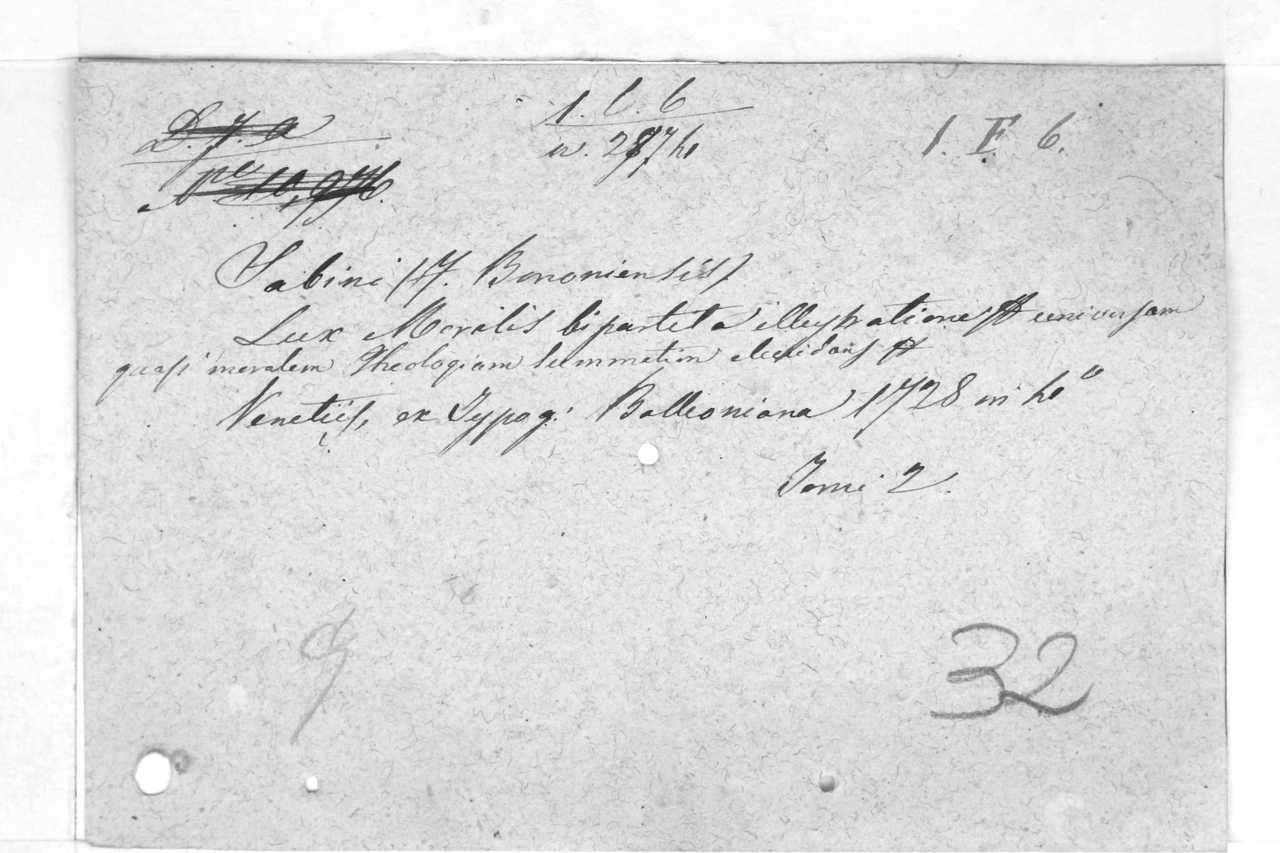 D. J. a
No 10,976.
1. C. 6
w. 287 40
1. F. 6.
Sabini (F. Bononiensis)
Lux Moralis bipartita illustratione universam
quasi moralem Theologiam summatim elucidans
Venetiis, ex Typog: Balleoniana 1728 in 4o
Tomi 2.
32